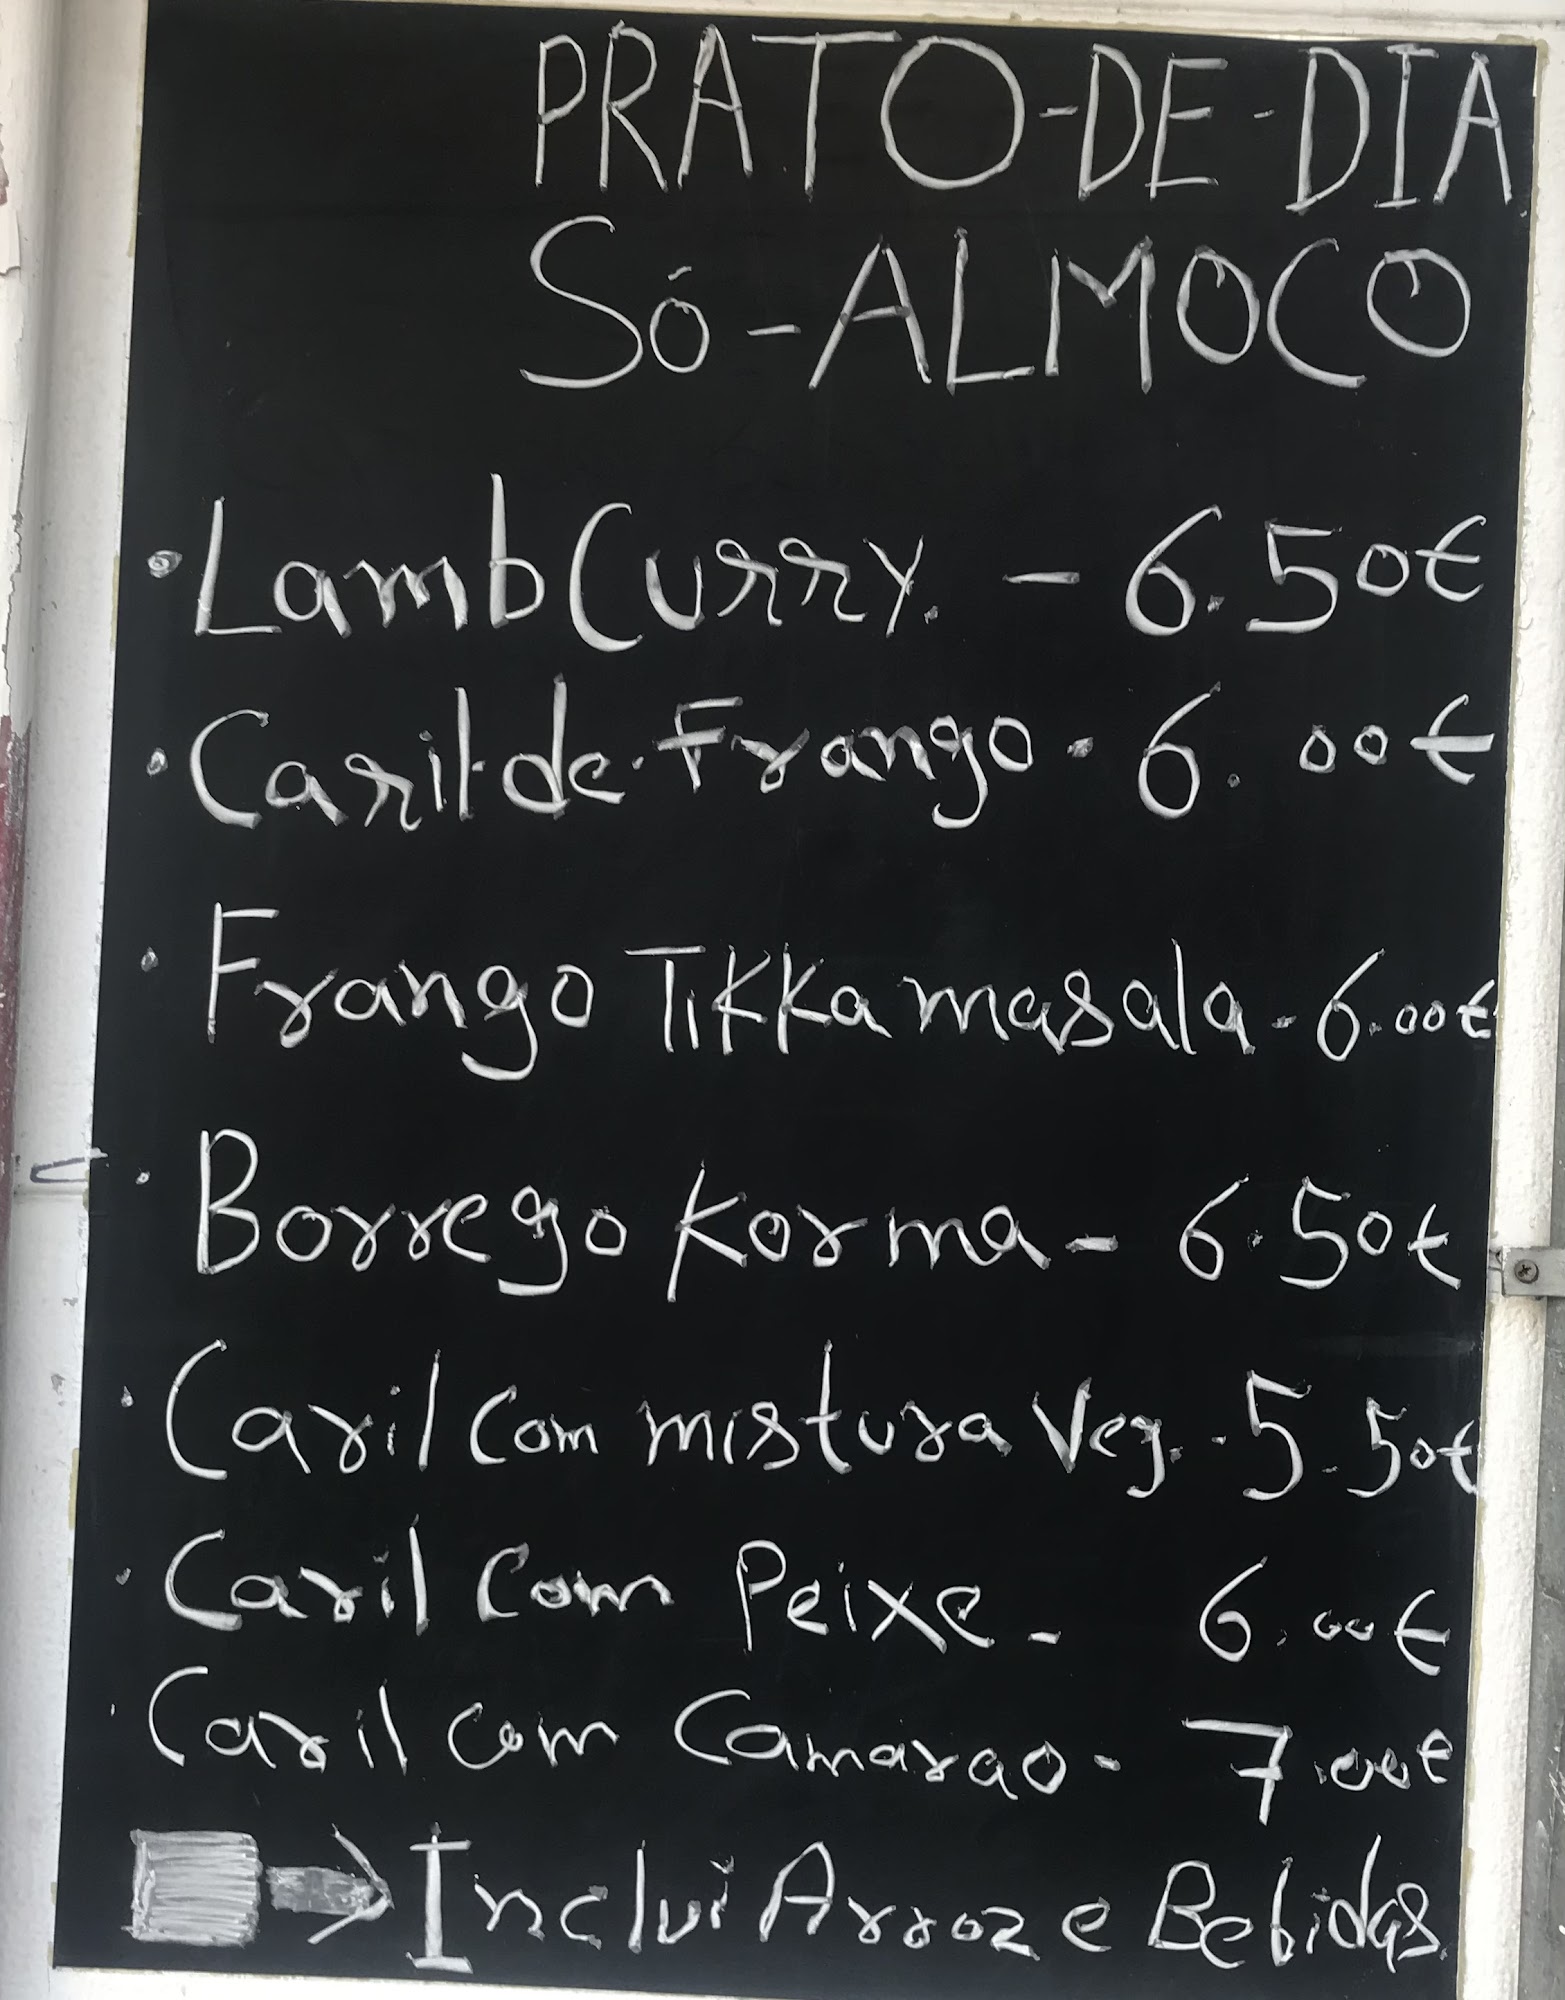 PRATO-DE-DIA
Só-ALMOCO
• Lamb Curry. - 6.50€
• Caril-de-Frango - 6.00€
• Frango Tikka masala - 6.00€
• Borrego Korma - 6.50€
• Caril com mistura Veg. - 5.50€
• Caril com Peixe - 6.00€
• Caril com Camarao - 7.00€
→ Inclui Arroz e Bebidas